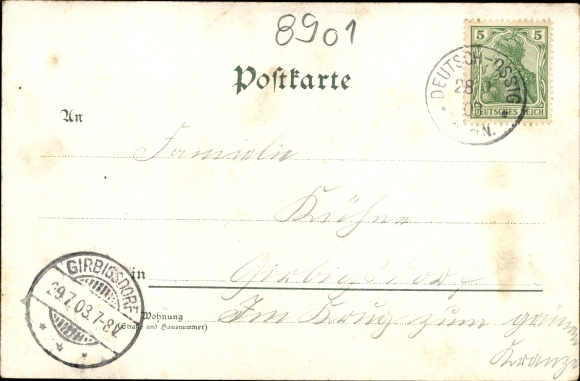 8901
5 5
DEUTSCHES REICH
DEUTSCH-OSSIG
28
Postkarte
An
Familie
Kühne
in Girbigsdorf
Wohnung Im Krug zum grünen
(Straße und Hausnummer)
Kranze
GIRBIGSDORF
29.7.03.7-8V.